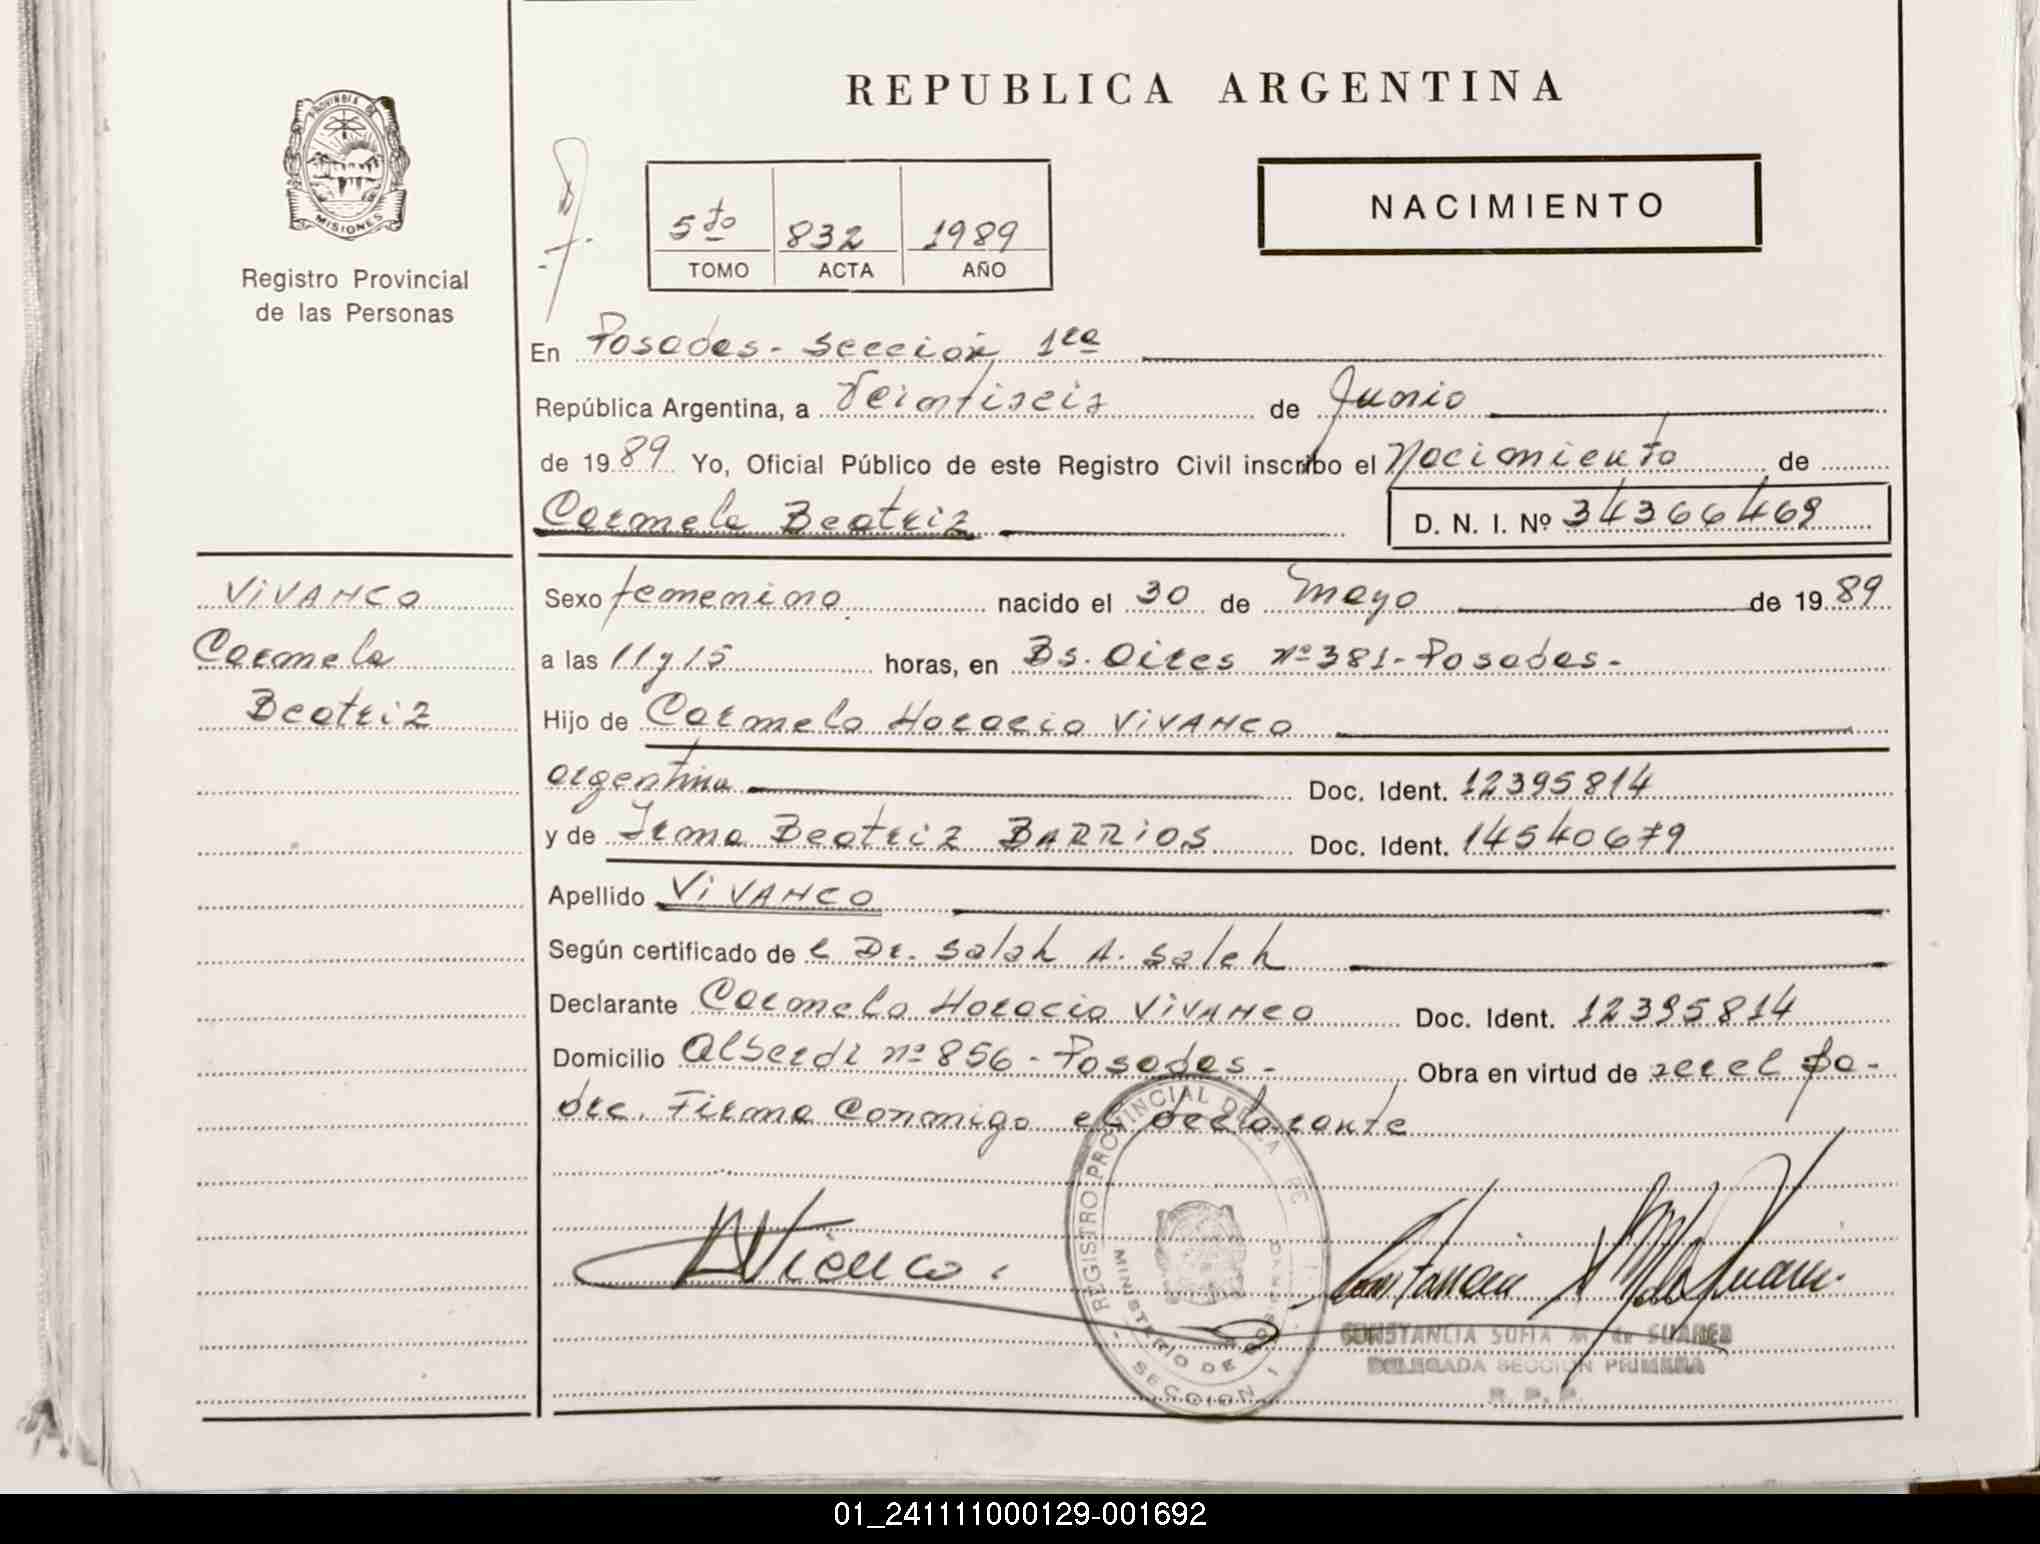 REPUBLICA ARGENTINA
PROVINCIA DE
MISIONES
Registro Provincial
de las Personas
NACIMIENTO
5to 832 1989
TOMO ACTA AÑO
En Posadas - Sección 1ra
República Argentina, a Veintiseis de Junio
de 1989 Yo, Oficial Público de este Registro Civil inscribo el Nacimiento de
Carmela Beatriz D. N. I. Nº 34366469
VIVANCO
Carmela
Beatriz
Sexo femenino nacido el 30 de mayo de 1989
a las 11 y 15 horas, en Bs. Aires nº 381 - Posadas -
Hijo de Carmelo Horacio VIVANCO
argentina Doc. Ident. 12395814
y de Irma Beatriz BARRIOS Doc. Ident. 14540679
Apellido VIVANCO
Según certificado de l Dr. Salah A. Saleh
Declarante Carmelo Horacio VIVANCO Doc. Ident. 12395814
Domicilio Alberdi nº 856 - Posadas - Obra en virtud de ser el pa-
dre. Firma conmigo el declarante
REGISTRO PROVINCIAL DE LA
MINISTERIO DE GOBIERNO
SECCION 1
CONSTANCIA SOFIA M. de SUAREZ
DELEGADA SECCION PRIMERA
R. P. P.
01_241111000129-001692